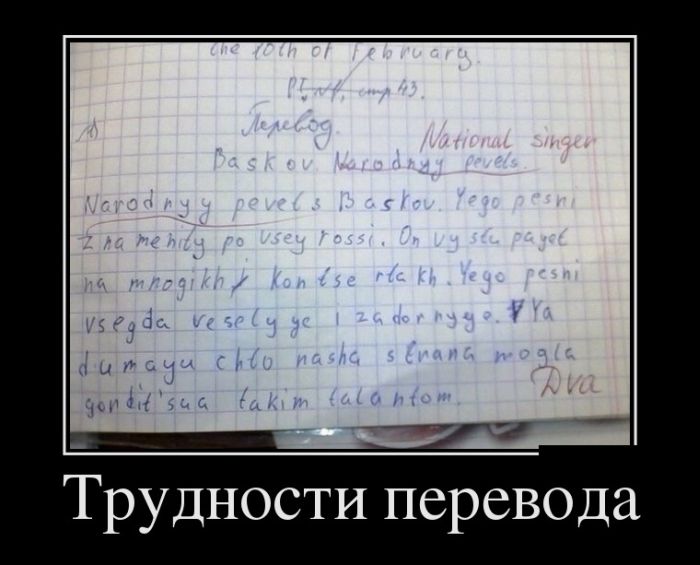 the 10th of February.
стр 43.
Перевод.
National singer
Baskov. Narodnyy pevets.
Narodnyy pevets Baskov. Yego pesni
znamenity po vsey rossi. On vystupayet
na mnogikh kontsertakh. Yego pesni
vsegda veselyye i zadornyye. Ya
dumayu chto nasha strana mogla
gordit'sya takim talantom.
Dva
Трудности перевода